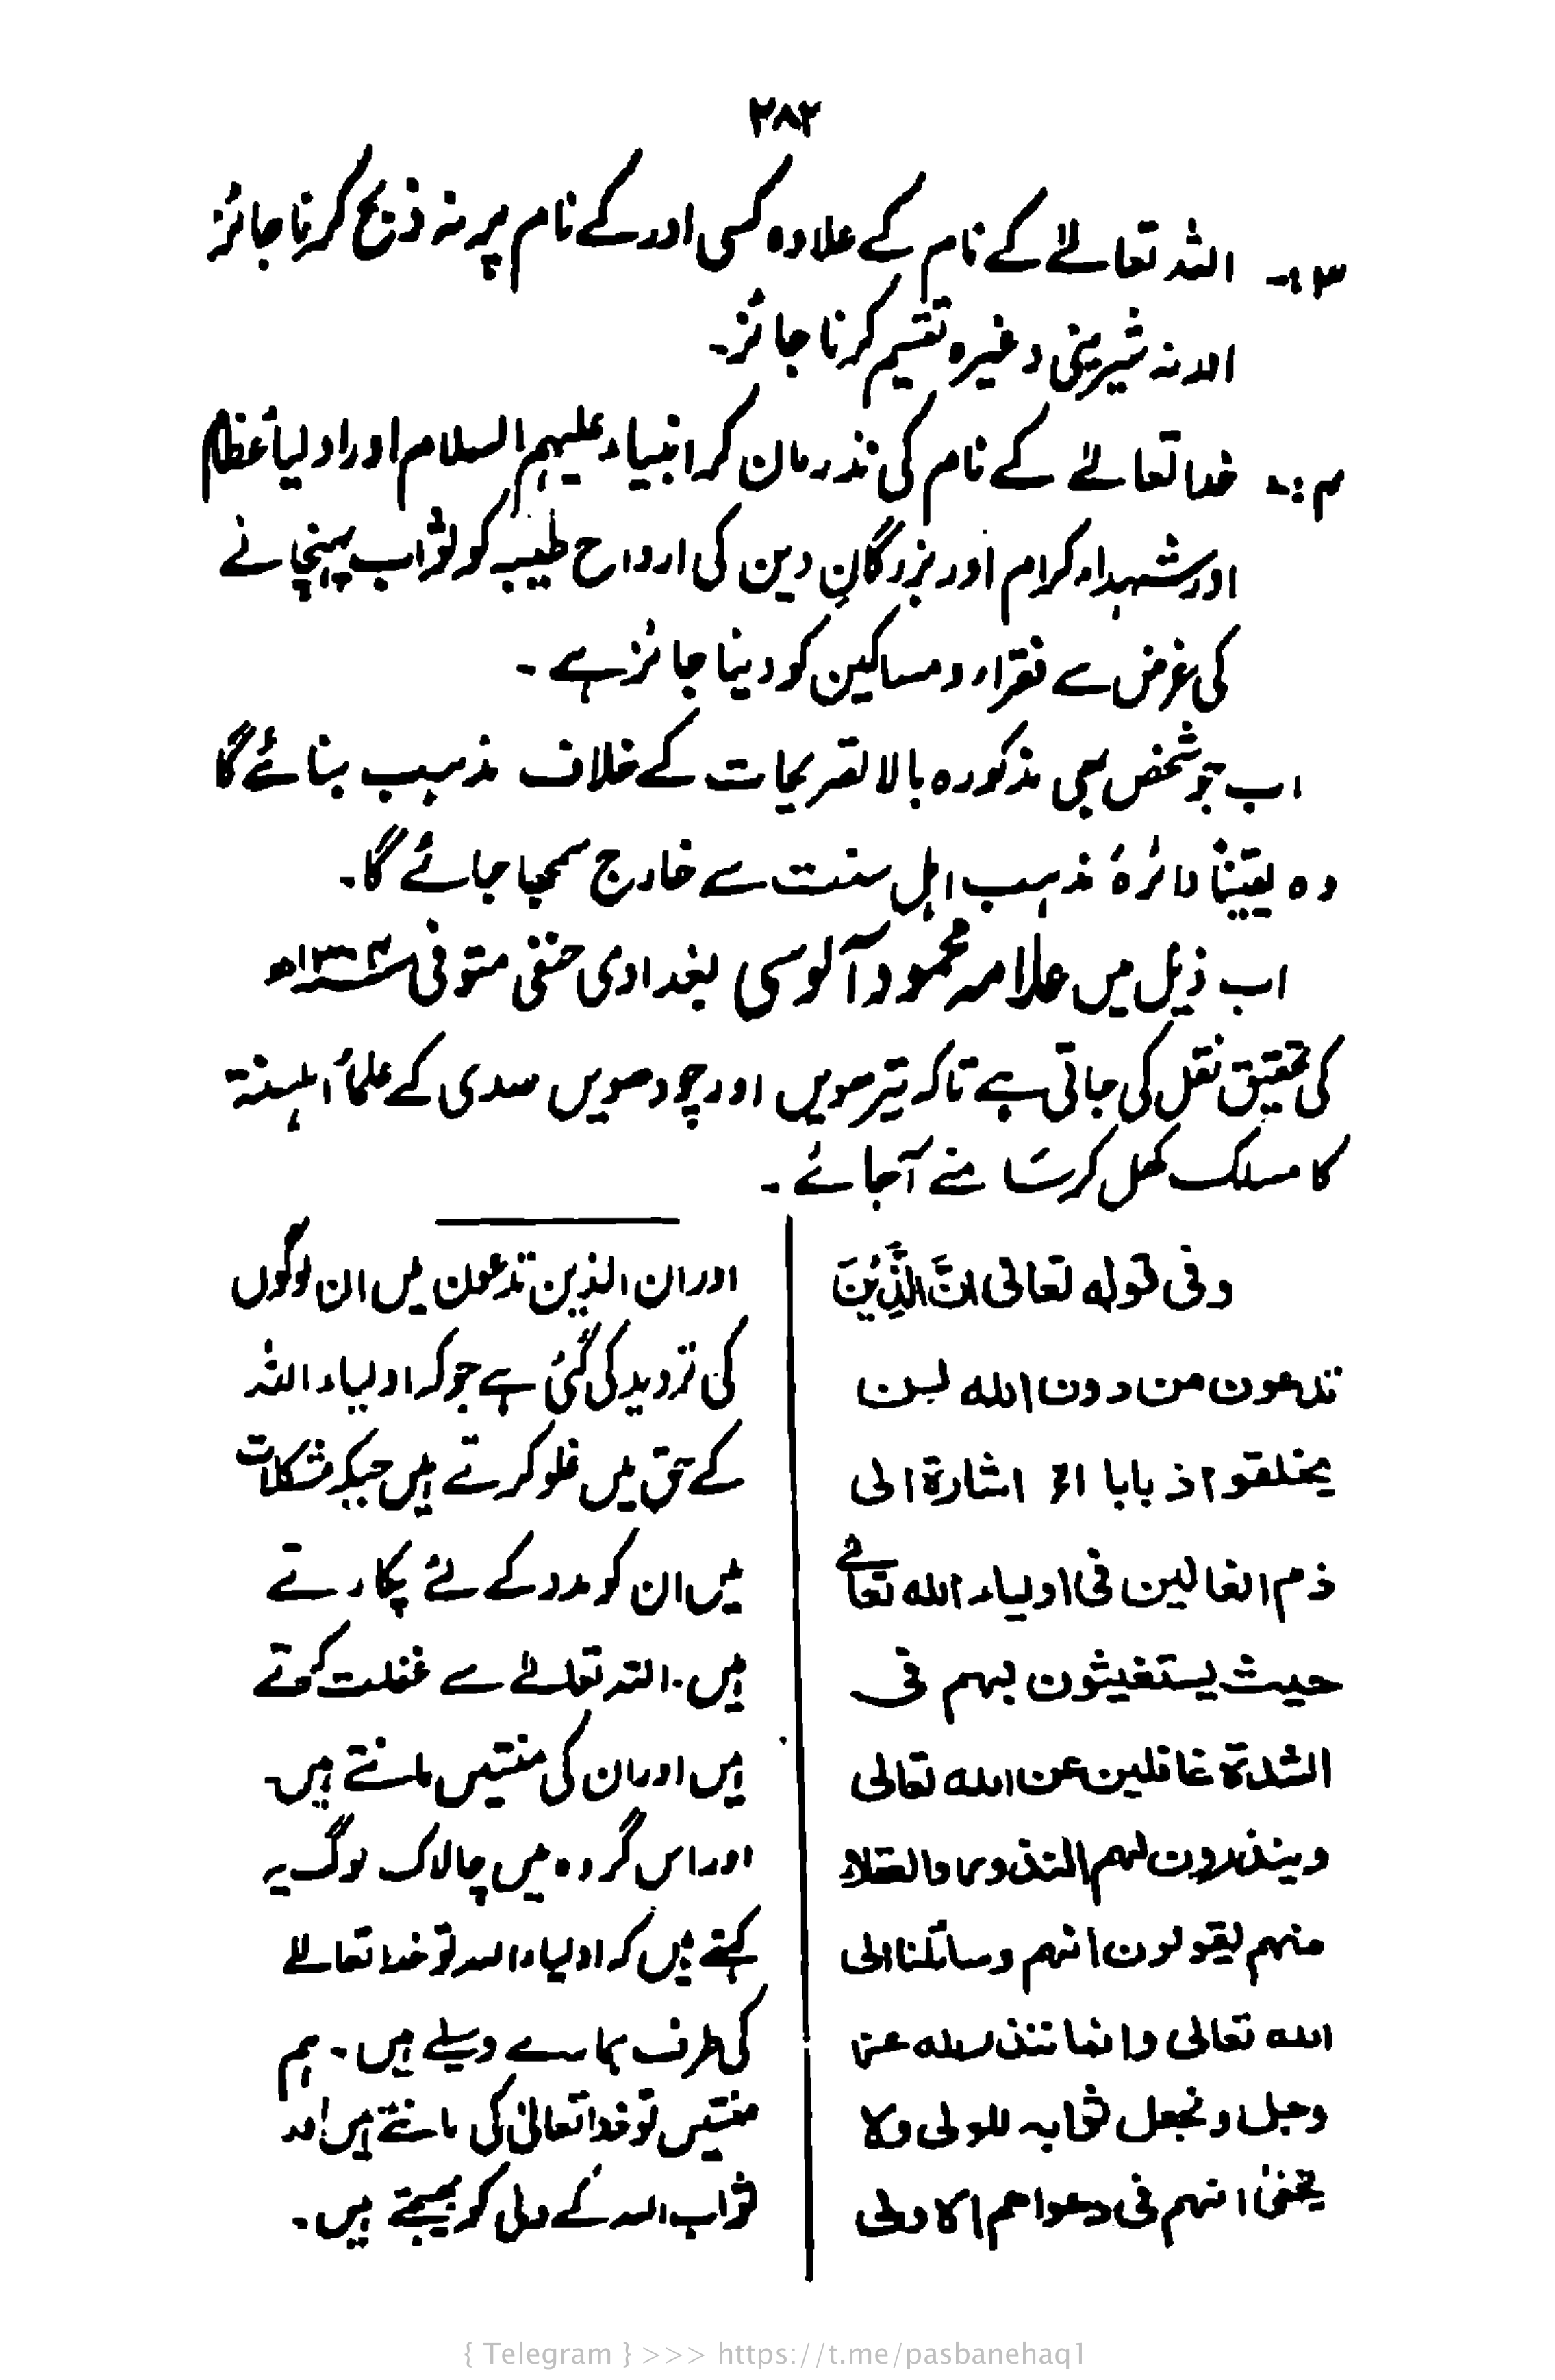 ۲۸۲
۳:- اللہ تعالےٰ کے نام کے علاوہ کسی اور کے نام پر نہ ذبح کرنا جائز
اور نہ شیرینی وغیرہ تقسیم کرنا جائز۔
۴:- خدا تعالےٰ کے نام کی نذر مان کر انبیاء علیہم السلام اور اولیأ عظام
اور شہداء کرام اور بزرگانِ دین کی ارواح طیبہ کو ثواب پہنچانے
کی غرض سے فقراء و مساکین کو دینا جائز ہے ۔
اب جو شخص بھی مذکورہ بالا تصریحات کے خلاف مذہب بنائے گا
وہ یقیناً دائرۂ مذہب اہل سنت سے خارج سمجھا جائے گا۔
اب ذیل میں علامہ محمود آلوسی بغدادی حنفی متوفی
کی تحقیق نقل کی جاتی ہے تاکہ تیرھویں اور چودھویں سدی کے علمأ اہلسنۃ
کا مسلک کھل کر سامنے آجائے ۔
وفی قولہ تعالی انَّ الَّذِیْنَ
تدعون من دون اللہ لن
یخلقوا ذبابا الخ اشارة الی
ذم الغالین فی اولیاء اللہ تعالےٰ
حیث یستغیثون بہم فی
الشدة غافلین عن اللہ تعالی
وینذرون لہم النذور والعقلاء
منہم یقولون انہم وسائلنا الی
اللہ تعالی وانما ننذر للہ عز
وجل و نجعل ثوابہ للولی ولا
یخفیٰ انہم فی دعواھم الاولی
اور ان الذین تدعون میں ان لوگوں
کی تردید کی گئی ہے جو کہ اولیاء اللہ
کے حق میں غلو کرتے ہیں جبکہ مشکلات
میں ان کو مدد کے لئے پکارتے
ہیں۔ اللہ تعالےٰ سے غفلت کرتے
ہیں اور ان کی منتیں مانتے ہیں۔
اور اس گروہ میں چالاک لوگ یہ
کہتے ہیں کہ اولیاء اللہ تو خدا تعالےٰ
کی طرف ہمارے وسیلے ہیں۔ ہم
منتیں تو خدا تعالیٰ کی مانتے ہیں اور
ثواب اللہ کے ولی کو بھیجتے ہیں۔
{ Telegram } >>> https://t.me/pasbanehaq1